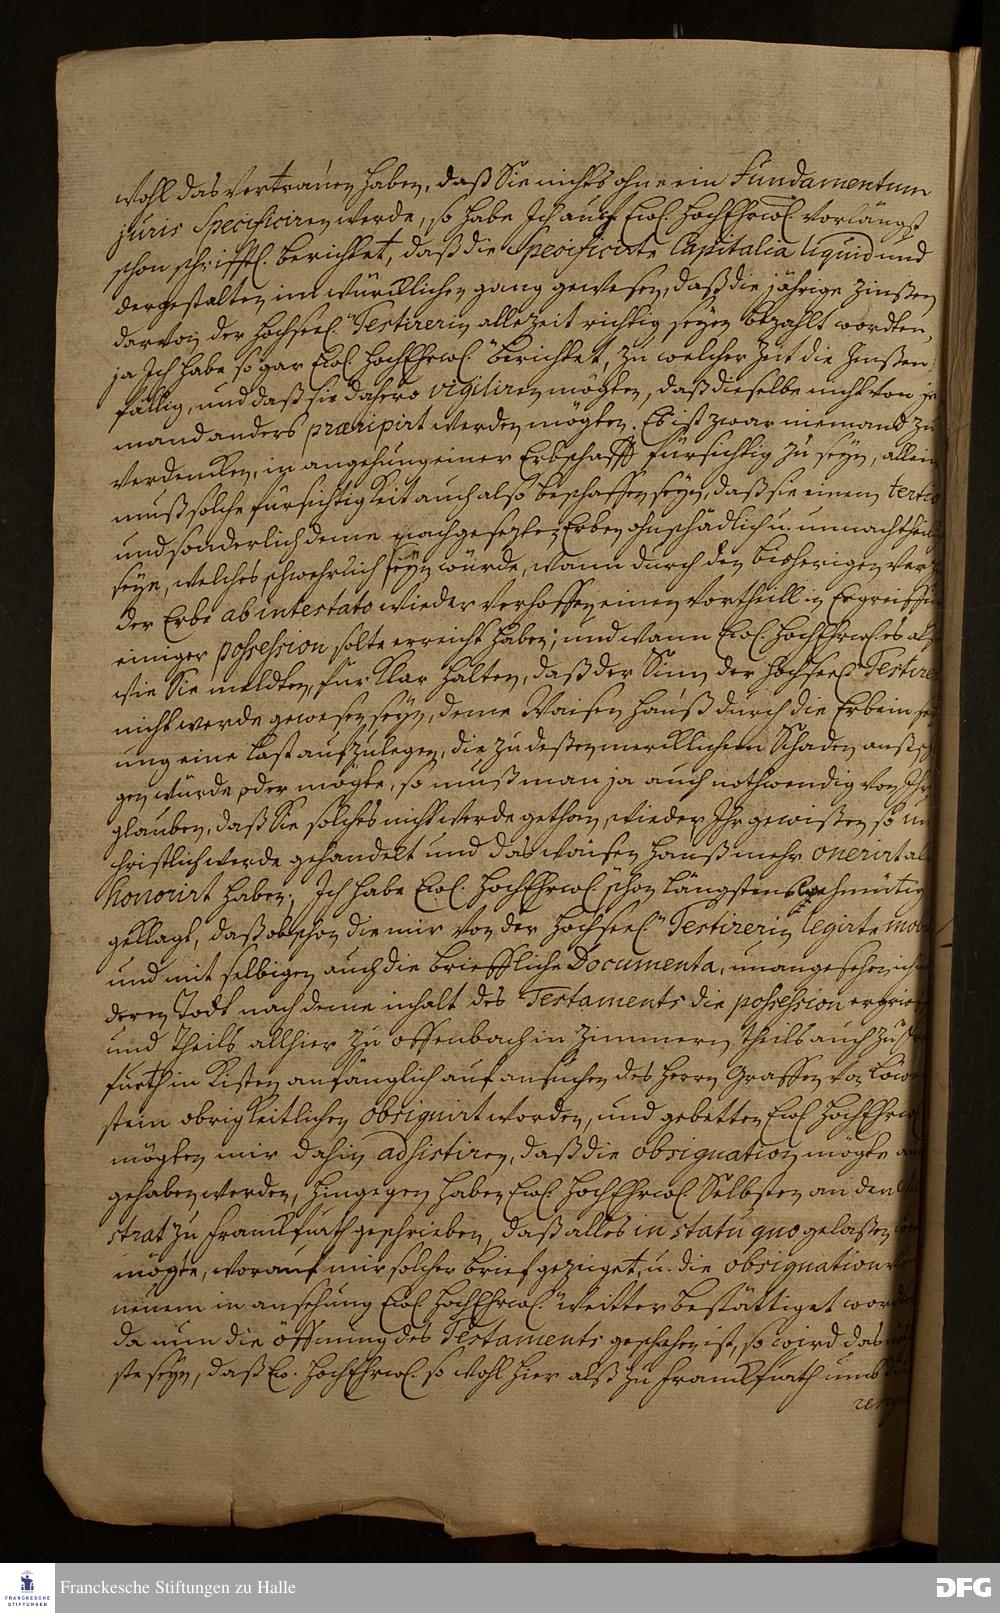 wohl das Vertrauen haben, daß Sie nichts ohne ein Fundamentum
juris specificiren werde, so habe Ich auch Ewl. HochEhrwl. Vorlängst
schon schrifftl. berichtet, daß die Specificirte Capitalia liquid und
dergestalten im würcklichen gang gewesen, daß die jährige Zinßen
darvon der Hochseel. Testirerin allezeit richtig seyen bezahlt wordten,
ja Ich habe so gar Ewl. HochEhrwl. berichtet, zu welcher Zeit die Zinßen
fällig, und daß sie dahero vigiliren mögten, daß dieselbe nicht von je
mand anders præripirt werden mögten. Es ist zwar niemand zu
verdencken, in angehung einer Erbschafft fürsichtig zu seyn, allein
muß solche fürsichtigkeit auch also beschaffen seyn, daß sie einem tertio
und sonderlich deme nachgesezten Erben ohnschädlich u. unnachtheilig
seye, welches schwehrlich seyn würde, wann durch den bißherigen Ver
der Erbe ab intestato wieder verhoffen einen Vortheill in Ergreiffung
einiger possession solte erreicht haben; und wann Ewl. HochEhrwl. es als
wie Sie meldten, für klar halten, daß der Sinn der Hochseel. Testire
nicht werde gewesen seyn, deme Waisen Hauß durch die Erbeinsez
ung eine Last aufzulegen, die zu deßen mercklichem Schaden
gen würde oder mögte, so muß man ja auch nothwendig von Ihr
glauben, daß Sie solches nicht werde gethan, wieder Ihr gewißen so un
christlich werde gehandelt und das waisen Hauß mehr onerirt als
honorirt haben; Ich habe Ewl. HochEhrwl. schon Längstens
geklagt, daß obschon die mir von der Hochseel. Testirerin legirte mobi
und mit selbigen auch die brieffliche Documenta, unangesehen ich
deren Todt nach deme inhalt des Testaments die possession ergrie
und theils allhier zu offenbach in Zimmern, theils auch zu Fr
furth in Kisten anfänglich auf ansuchen des Herrn Graffen von Löwe
stein obrigkeitlichen obsignirt worden, und gebetten Ewl. HochEhrwl
mögten mir dahin adsistiren, daß die obsignation mögte
gehaben werden, hingegen haben Ewl. HochEhrwl. Selbsten an den
strat zu Franckfurth geschrieben, daß alles in statu quo gelaßen
mögte, worauf mir solcher brief gezeiget, u. die obsignation
neuem in ansehung Ewl. HochEhrwl. weitter bestättiget worden
da nun die öffnung des Testaments geschehen ist, so wird das
ste seyn, daß Ew. HochEhrwl. so wohl hier alß zu Franckfurth umb die
Franckesche Stiftungen zu Halle
FRANCKESCHE
STIFTUNGEN
DFG